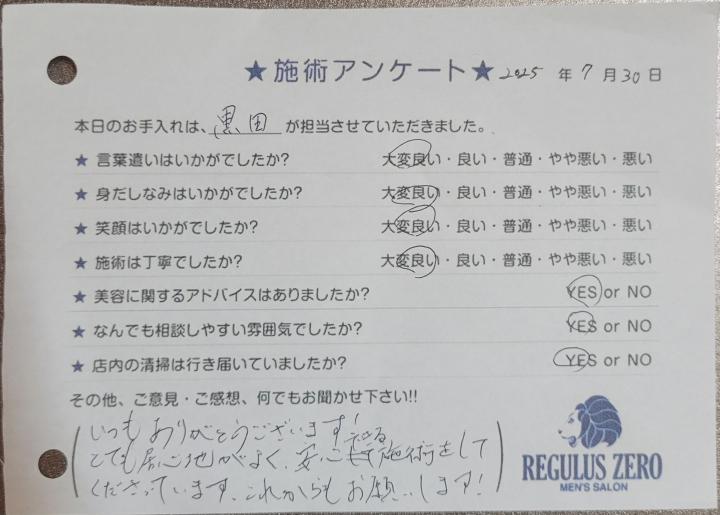 ★施術アンケート★ 2025 年 7 月 30 日
本日のお手入れは、黒田 が担当させていただきました。
★ 言葉遣いはいかがでしたか? 大変良い・良い・普通・やや悪い・悪い
★ 身だしなみはいかがでしたか? 大変良い・良い・普通・やや悪い・悪い
★ 笑顔はいかがでしたか? 大変良い・良い・普通・やや悪い・悪い
★ 施術は丁寧でしたか? 大変良い・良い・普通・やや悪い・悪い
★ 美容に関するアドバイスはありましたか? YES or NO
★ なんでも相談しやすい雰囲気でしたか? YES or NO
★ 店内の清掃は行き届いていましたか? YES or NO
その他、ご意見・ご感想、何でもお聞かせ下さい!!
いつもありがとうございます!
とても居心地がよく、安心できる施術をして
くださっています、これからもお願いします!
REGULUS ZERO
MEN'S SALON